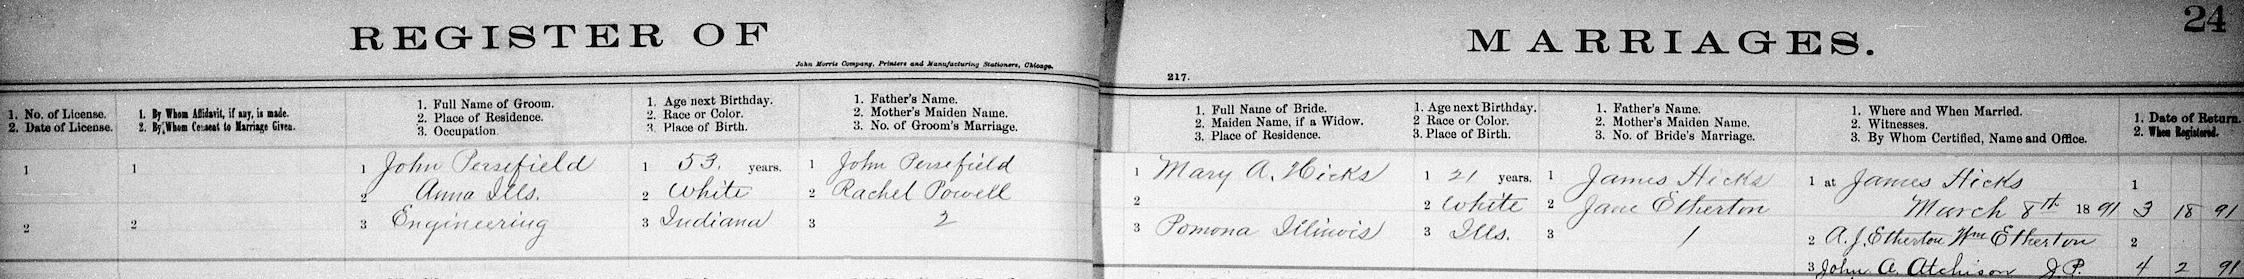 24
REGISTER OF MARRIAGES.
John Morris Company, Printers and Manufacturing Stationers, Chicago.
217.
1. No. of License.
2. Date of License.
1. By Whom Affidavit, if any, is made.
2. By Whom Consent to Marriage Given.
1. Full Name of Groom.
2. Place of Residence.
3. Occupation
1. Age next Birthday.
2. Race or Color.
3. Place of Birth.
1. Father's Name.
2. Mother's Maiden Name.
3. No. of Groom's Marriage.
1. Full Name of Bride.
2. Maiden Name, if a Widow.
3. Place of Residence.
1. Age next Birthday.
2 Race or Color.
3. Place of Birth.
1. Father's Name.
2. Mother's Maiden Name.
3. No. of Bride's Marriage.
1. Where and When Married.
2. Witnesses.
3. By Whom Certified, Name and Office.
1. Date of Return.
2. When Registered.
1
2
1
2
1 John Persefield
2 Anna Ills.
3 Engineering
1 53. years.
2 White
3 Indiana
1 John Persefield
2 Rachel Powell
3 2
1 Mary A. Hicks
2
3 Pomona Illinois
1 21 years.
2 White
3 Ills.
1 James Hicks
2 Jane Etherton
3 1
1 at James Hicks
March 8th 1891
2 A. J. Etherton Wm Etherton
3 John A. Atchison J. P.
1
3 18 91
2
4 2 91